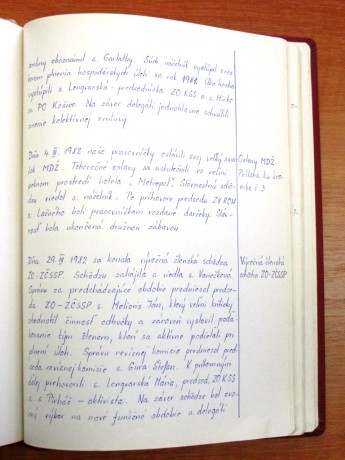 zmluvy oboznámil s. Garlathy. Súdr. náčelník vystúpil s rozborom plnenia hospodárskych úloh za rok 1981. Ako hostia
vystúpili s. Lengvarská - predsedníčka ZO KSS a s. Hirko
za PO Košice. Na záver delegáti jednohlasne schválili
znenie kolektívnej zmluvy.
Dňa 4. III. 1982 naše pracovníčky oslávili svoj veľký sviatok MDŽ. Tohoročné oslavy sa uskutočnili vo veľmi
príjemnom prostredí hotela "Metropol". Slávnostnú schôdzu viedol s. náčelník. Po príhovore predsedu ZV ROH
s. Lačného boli pracovníčkam rozdané darčeky. Slávnosť bola ukončená družnou zábavou.
Oslavy MDŽ
Príloha ku kronike č. 3
Dňa 29. III 1982 sa konala výročná členská schôdza
ZO-ZČSSP. Schôdzu zahájila a viedla s. Vanečková.
Správu za predchádzajúce obdobie predniesol predseda ZO-ZČSSP s. Melioris Ján, ktorý veľmi kriticky
zhodnotil činnosť odbočky a zároveň vyslovil poďakovanie tým členom, ktorí sa aktívne podieľali pri
plnení úloh. Správu revíznej komisie predniesol predseda revíznej komisie s. Gura Štefan. K prítomným
ďalej prehovorili s. Lengvarská Mária, predsed. ZO KSS
a s. Puháč - aktivista. Na záver schôdze bol zvolený výbor na nové funkčné obdobie a delegáti
Výročná členská
schôdza ZO-ZČSSP.